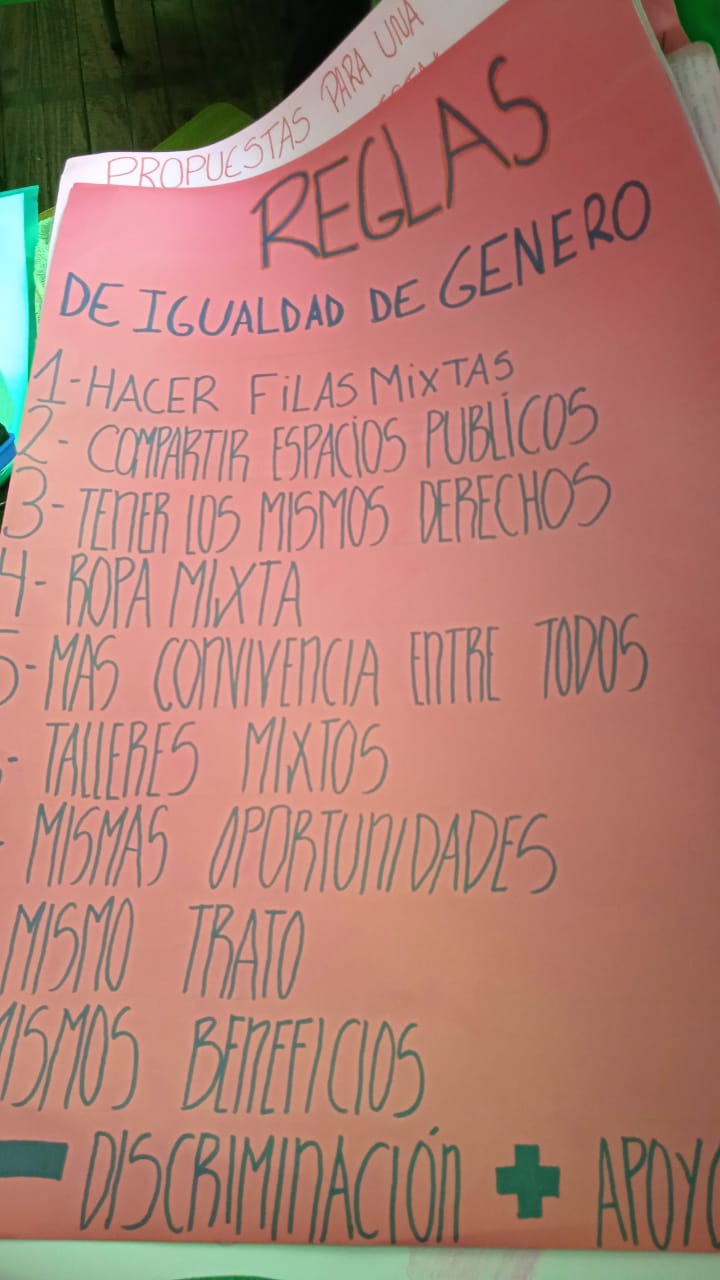 PROPUESTAS PARA UNA
REGLAS
DE IGUALDAD DE GENERO
1-HACER FiLAS MixTAS
2- COMPARTIR ESPACIOS PUBLICOS
3-TENER LOS MISMOS DERECHOS
4- ROPA MIXTA
5-MAS CONVIVENCIA ENTRE TODOS
- TALLERES MIXTOS
- MISMAS OPORTUNIDADES
MISMO TRATO
MISMOS BENEFICIOS
- DISCRIMINACIÓN + APOYO